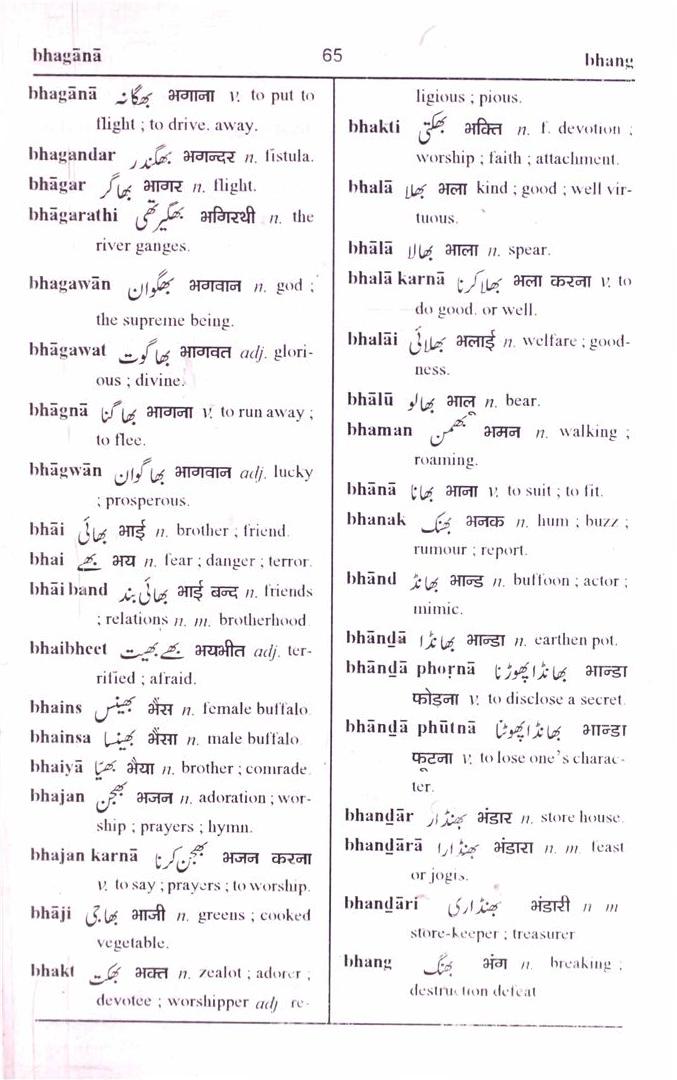 bhagānā
65
bhang
bhagānā بھگانہ भगाना v. to put to
flight ; to drive. away.
bhagandar بھگندر भगन्दर n. fistula.
bhāgar بھاگر भागर n. flight.
bhāgarathi بھگیرتھی भगिरथी n. the
river ganges.
bhagawān بھگوان भगवान n. god ;
the supreme being.
bhāgawat بھاگوت भागवत adj. glori-
ous ; divine.
bhāgnā بھاگنا भागना v. to run away ;
to flee.
bhāgwān بھاگوان भागवान adj. lucky
; prosperous.
bhāi بھائی भाई n. brother ; friend.
bhai بھے भय n. fear ; danger ; terror.
bhāi band بھائی بند भाई बन्द n. friends
; relations n. m. brotherhood.
bhaibheet بھے بھیت भयभीत adj. ter-
rified ; afraid.
bhains بھینس भैंस n. female buffalo.
bhainsa بھینسا भैंसा n. male buffalo.
bhaiyā بھیّا भैया n. brother ; comrade.
bhajan بھجن भजन n. adoration ; wor-
ship ; prayers ; hymn.
bhajan karnā بھجن کرنا भजन करना
v. to say ; prayers ; to worship.
bhāji بھاجی भाजी n. greens ; cooked
vegetable.
bhakt بھکت भक्त n. zealot ; adorer ;
devotee ; worshipper adj re-
ligious ; pious.
bhakti بھکتی भक्ति n. f. devotion ;
worship ; faith ; attachment.
bhalā بھلا भला kind ; good ; well vir-
tuous.
bhālā بھالا भाला n. spear.
bhalā karnā بھلا کرنا भला करना v. to
do good. or well.
bhalāi بھلائی भलाई n. welfare ; good-
ness.
bhālū بھالو भालू n. bear.
bhaman بھمن भमन n. walking ;
roaming.
bhānā بھانا भाना v. to suit ; to fit.
bhanak بھنک भनक n. hum ; buzz ;
rumour ; report.
bhānd بھانڈ भान्ड n. buffoon ; actor ;
mimic.
bhānḏā بھانڈا भान्डा n. earthen pot.
bhānḏā phoṛnā بھانڈا پھوڑنا भान्डा
फोड़ना v. to disclose a secret.
bhānḏā phūtnā بھانڈا پھوٹنا भान्डा
फूटना v. to lose one's charac-
ter.
bhanḏār بھنڈار भंडार n. store house.
bhanḏārā بھنڈارا भंडारा n. m. feast
or jogis.
bhanḏāri بھنڈاری भंडारी n m
store-keeper ; treasurer
bhang بھنگ भंग n. breaking ;
destruction defeat